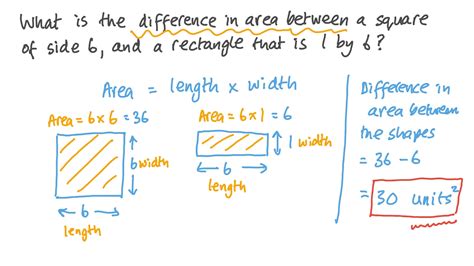 What is the difference in area between a square
of side 6, and a rectangle that is 1 by 6?
Area = length x width
Area = 6 x 6 = 36
6 width
← 6 →
length
Area = 6 x 1 = 6
1 width
← 6 →
length
Difference in
area between
the shapes
= 36 - 6
= 30 units²